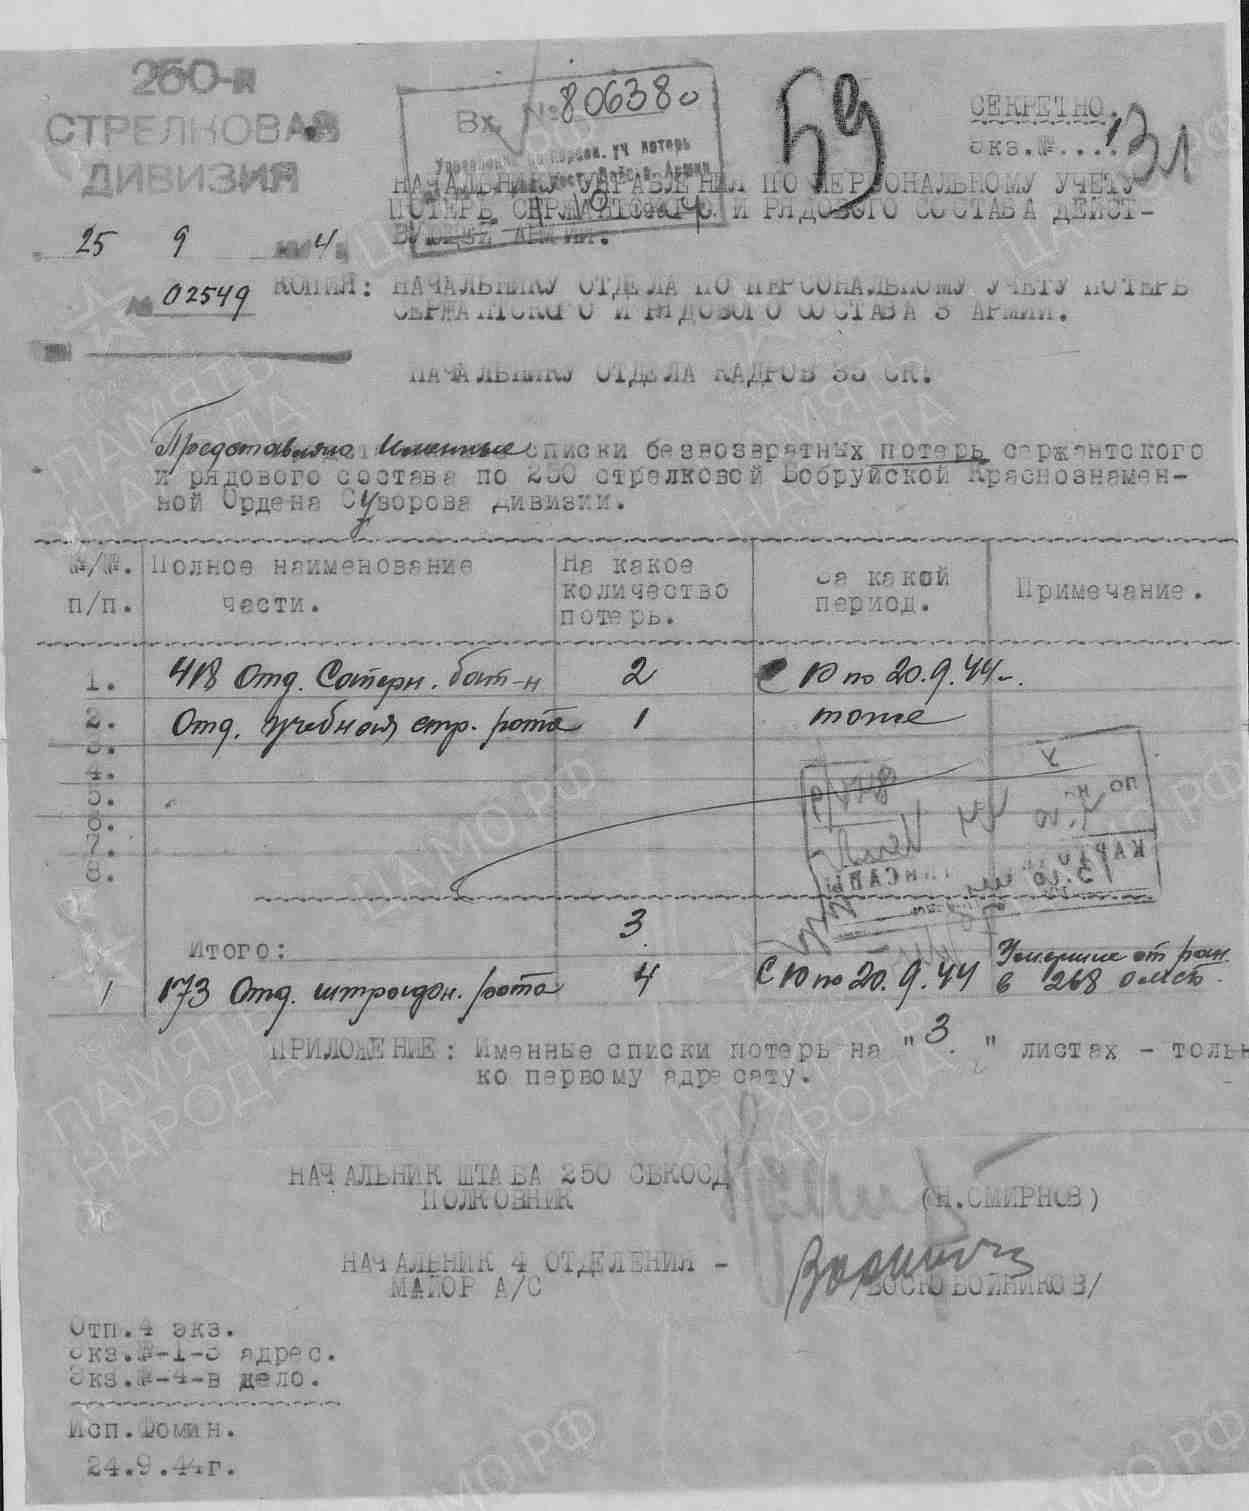 250-я
СТРЕЛКОВАЯ
ДИВИЗИЯ
25 9 4
№ 02549
Вх. № 806380
59
СЕКРЕТНО.
Экз.№....1
31
НАЧАЛЬНИКУ УПРАВЛЕНИЯ ПО ПЕРСОНАЛЬНОМУ УЧЕТУ
ПОТЕРЬ СЕРЖАНТСКОГО И РЯДОВОГО СОСТАВА ДЕЙСТ-
ВУЮЩЕЙ АРМИИ.
КОПИЯ: НАЧАЛЬНИКУ ОТДЕЛА ПО ПЕРСОНАЛЬНОМУ УЧЕТУ ПОТЕРЬ
СЕРЖАНТСКОГО И РЯДОВОГО СОСТАВА 3 АРМИИ.
НАЧАЛЬНИКУ ОТДЕЛА КАДРОВ 35 СК.
Представляю Именные списки безвозвратных потерь сержантского
и рядового состава по 250 стрелковой Бобруйской Краснознамен-
ной Ордена Суворова дивизии.
№/№. п/п.
Полное наименование части.
На какое количество потерь.
За какой период.
Примечание.
1. 418 Отд. Саперн. бат-н 2 С 10 по 20.9.44 г.
2. Отд. учебная стр. рота 1 тоже
3.
4.
5.
6.
7.
8.
Итого: 3
1 173 Отд. штрафн. рота 4 С 10 по 20.9.44 Умершие от ран
в 268 омсб.
ПРИЛОЖЕНИЕ: Именные списки потерь на "3." листах - толь
ко первому адресату.
НАЧАЛЬНИК ШТАБА 250 СБКОСД
ПОЛКОВНИК (Н.СМИРНОВ)
НАЧАЛЬНИК 4 ОТДЕЛЕНИЯ -
МАЙОР А/С
Отп.4 экз.
Экз.№-1-3 адрес.
Экз.№-4-в дело.
Исп.Фомин.
24.9.44г.